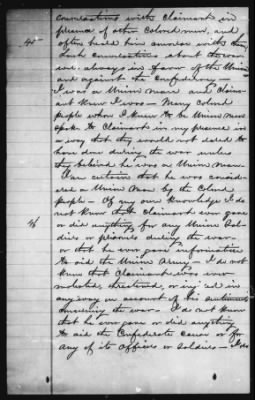 conversations with Claimant in
presence of other Colored men, and
45 often heard him converse with them,
Such conversations about the war
were always in favor of the Union
and against the Confederacy —
I was a Union man and Claim-
ant knew I was — Many Colored
people whom I knew to be Union men
spoke to Claimant in my presence in
a way that they would not dared to
have done during the war unless
they believed he was a Union man.
I am certain that he was consid-
ered a Union man by the Colored
people — Of my own knowledge I do
not know that Claimant ever gave
46 or did anything for any Union Sol-
diers or prisoners during the war —
or that he ever gave information
to aid the Union Army — I do not
know that Claimant was ever
molested, threatened, or injured in
any way on account of his sentiments
during the war — I do not know
that he ever gave or did anything
to aid the Confederate cause or for
any of its officers or soldiers — I do